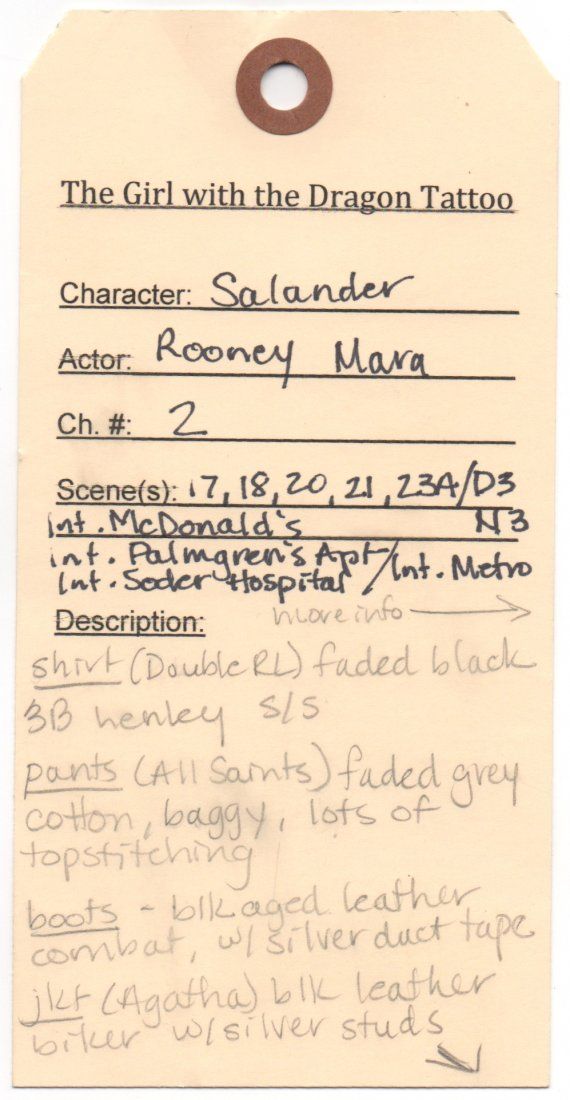 The Girl with the Dragon Tattoo
Character: Salander
Actor: Rooney Mara
Ch. #: 2
Scene(s): 17, 18, 20, 21, 23A/D3
Int. McDonald's N3
int. Palmgren's Apt / Int. Metro
Int. Soder Hospital
Description: more info →
shirt (Double RL) faded black
3B henley s/s
pants (All Saints) faded grey
cotton, baggy, lots of
topstitching
boots - blk aged leather
combat, w/ silver duct tape
jkt (Agatha) blk leather
biker w/ silver studs